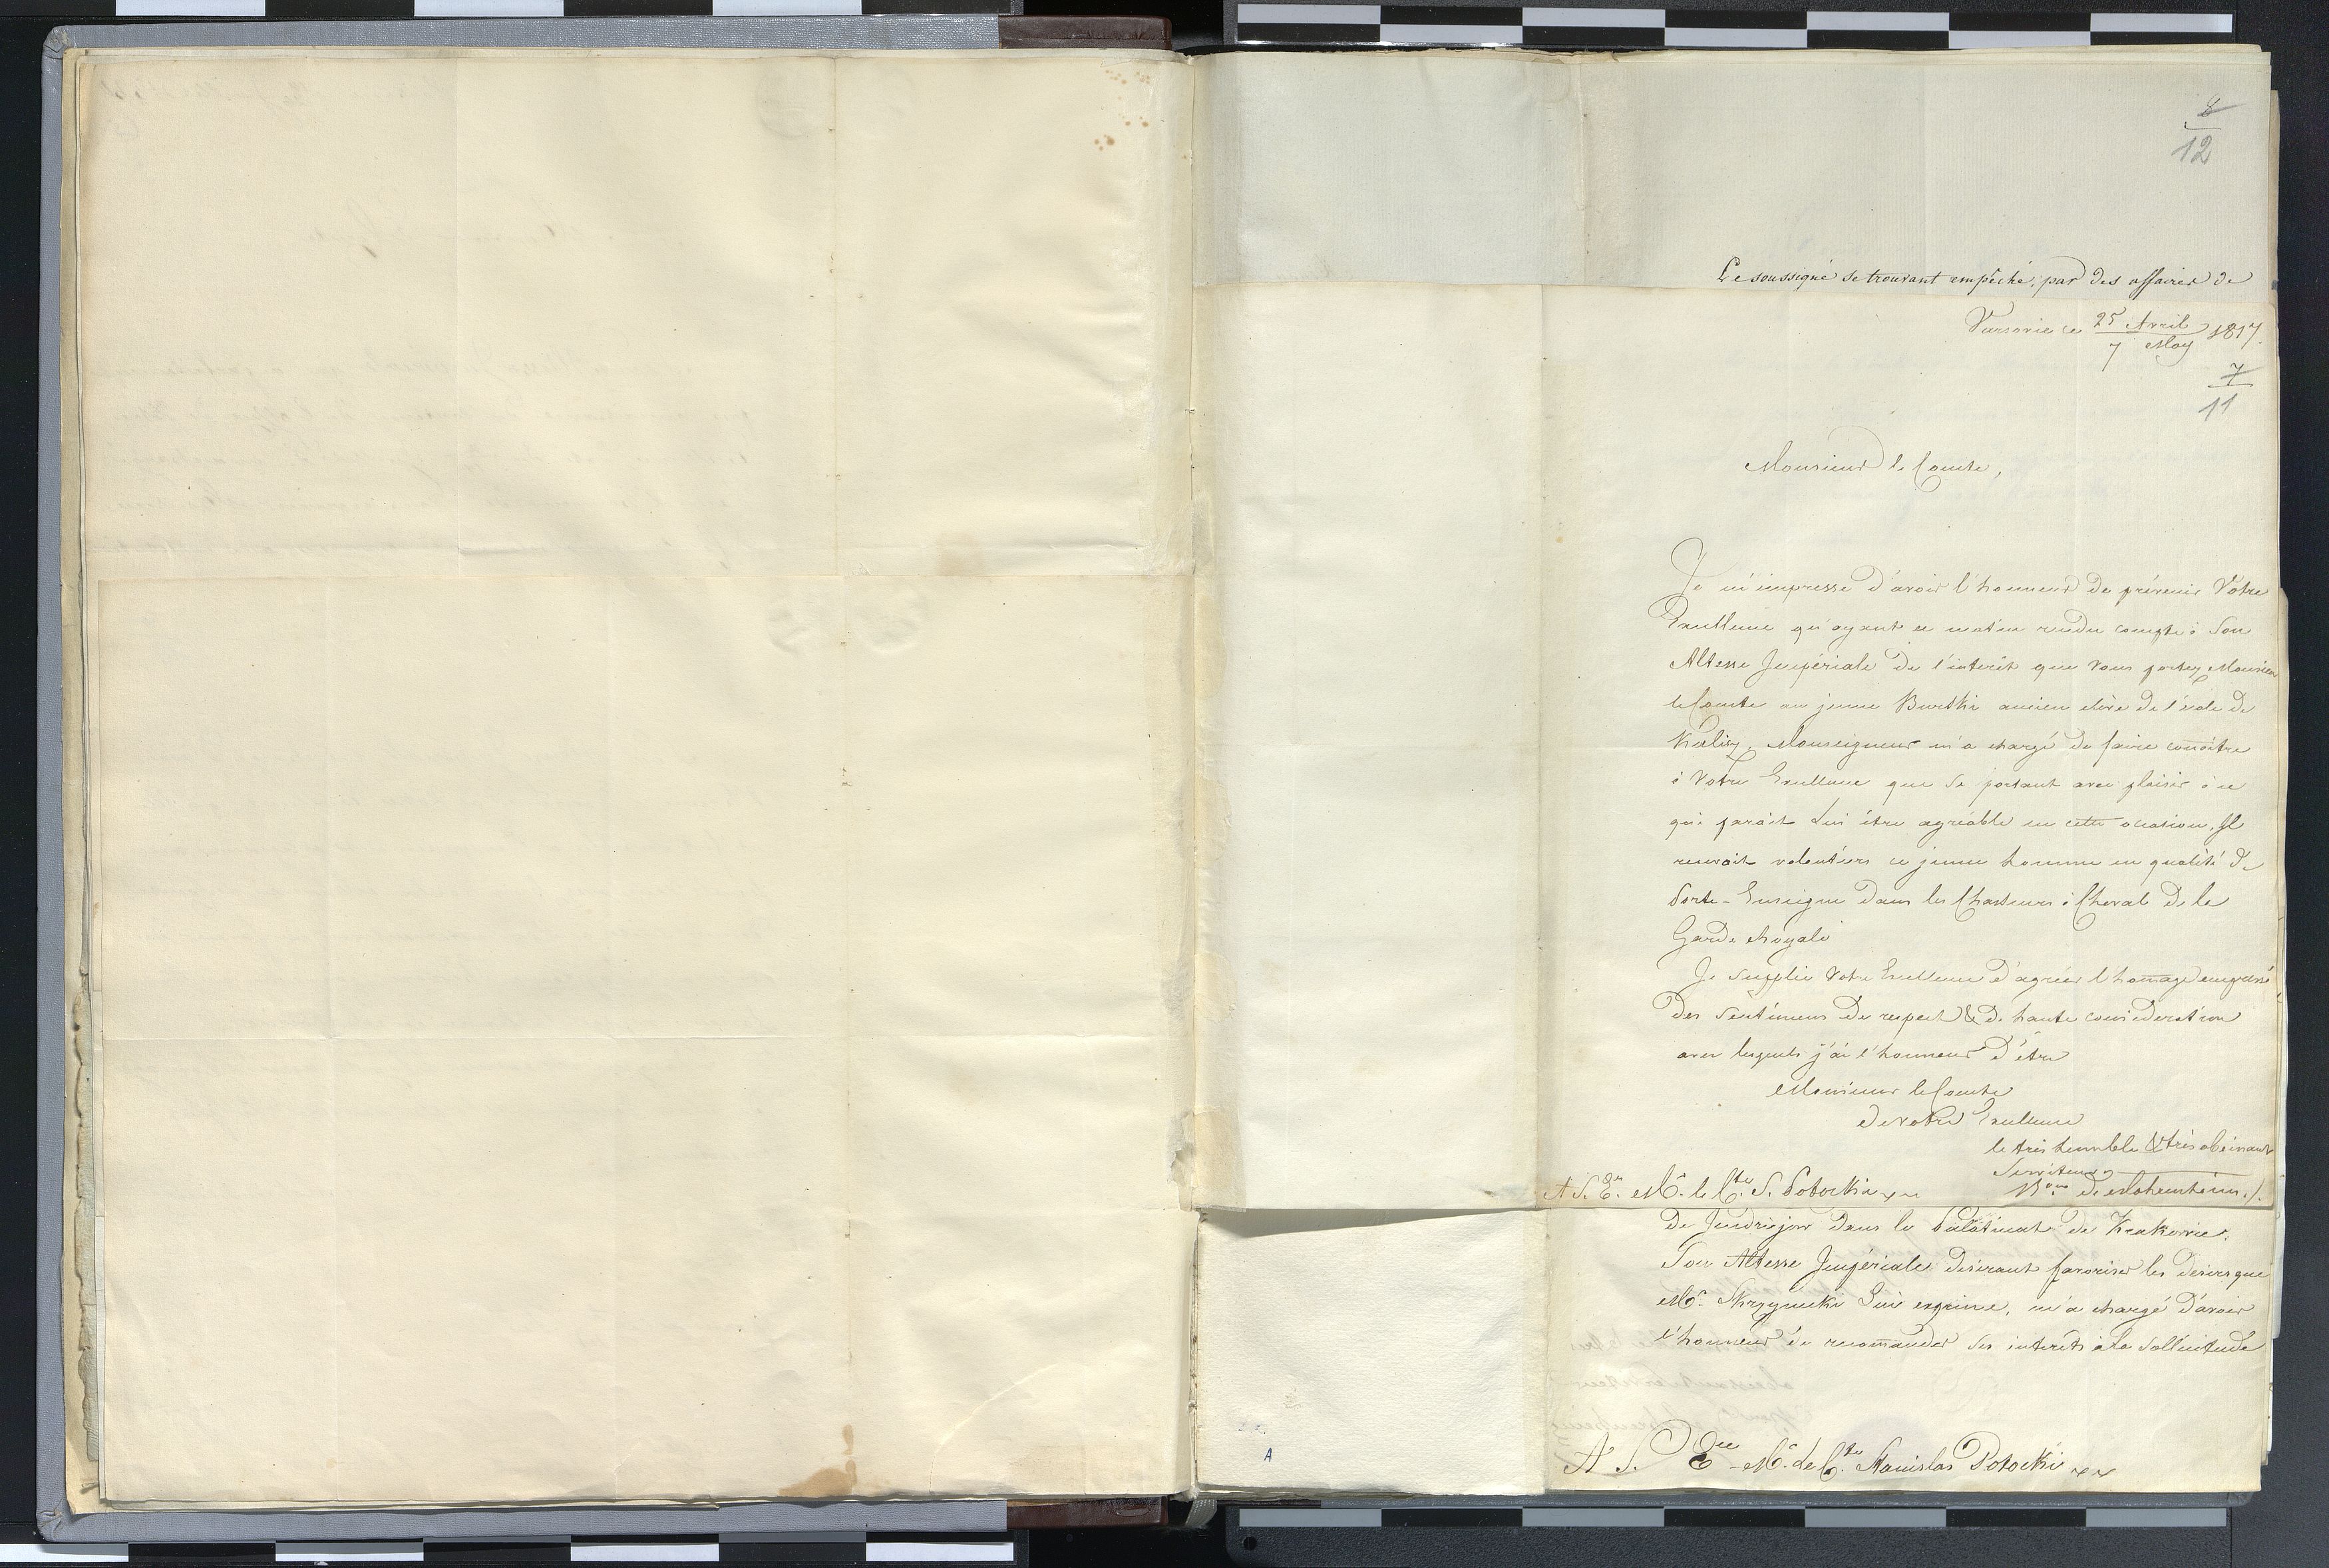 8
12
Le soussigné se trouvant empêché, par des affaires de
Varsovie ce 25 Avril / 7 May 1817.
7
11
Monsieur le Comte,
Je m'empresse d'avoir l'honneur de prévenir Votre
Excellence qu'ayant ce matin rendu compte à Son
Altesse Impériale de l'intérêt que Vous portez, Monsieur
le Comte au jeune Burski ancien elève de l'école de
Kalisz, Monseigneur m'a chargé de faire connoître
à Votre Excellence que se portant avec plaisir à ce
qui paroit Lui être agréable en cette occasion, Il
recevroit volontiers ce jeune homme en qualité de
Porte-Enseigne dans les Chasseurs à Cheval de la
Garde Royale
Je supplie Votre Excellence d'agréer l'homage empressé
des sentimens de respect & de haute consideration
avec lesquels j'ai l'honneur d'être
Monsieur le Comte
de Votre Excellence
le très humble & très obéissant
Serviteur
Bon de Mohrenheim ./.
A S. Ex. Mr. le Cte. S. Potocki
de Jendrzejow dans le Palatinat de Krakovie.
Son Altesse Impériale desirant favoriser les desirs que
Mr. Skrzynecki Lui exprime, m'a chargé d'avoir
l'honneur de recomander ses intérêts à la sollicitude
A S. Exce Mr. le Cte. Stanislas Potocki
A